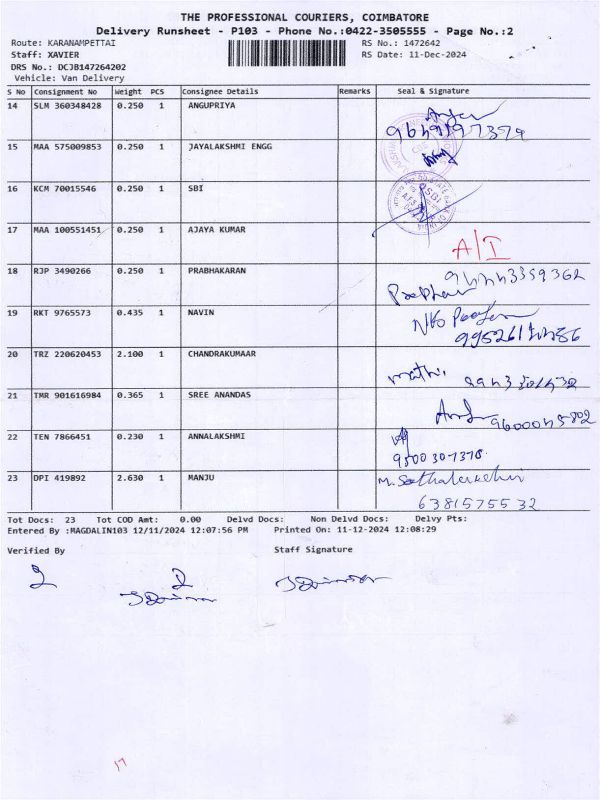 THE PROFESSIONAL COURIERS, COIMBATORE
Delivery Runsheet - P103 - Phone No.:0422-3505555 - Page No.:2
Route: KARANAMPETTAI RS No.: 1472642
Staff: XAVIER RS Date: 11-Dec-2024
DRS No.: DCJB147264202
Vehicle: Van Delivery
S No Consignment No Weight PCS Consignee Details Remarks Seal & Signature
14 SLM 360348428 0.250 1 ANGUPRIYA
15 MAA 575009853 0.250 1 JAYALAKSHMI ENGG
16 KCM 70015546 0.250 1 SBI
17 MAA 100551451 0.250 1 AJAYA KUMAR A/I
18 RJP 3490266 0.250 1 PRABHAKARAN
19 RKT 9765573 0.435 1 NAVIN
20 TRZ 220620453 2.100 1 CHANDRAKUMAAR
21 TMR 901616984 0.365 1 SREE ANANDAS
22 TEN 7866451 0.230 1 ANNALAKSHMI
23 DPI 419892 2.630 1 MANJU
6381575532
Tot Docs: 23 Tot COD Amt: 0.00 Delvd Docs: Non Delvd Docs: Delvy Pts:
Entered By :MAGDALIN103 12/11/2024 12:07:56 PM Printed On: 11-12-2024 12:08:29
Verified By Staff Signature
17